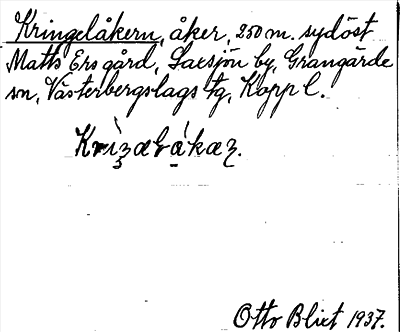 Kringelåkern, åker, 250 m. sydöst
Matts Ers gård, Saxsjön by, Grangärde
sn, Västerbergslags tg, Kopp l.
Otto Blixt 1937.